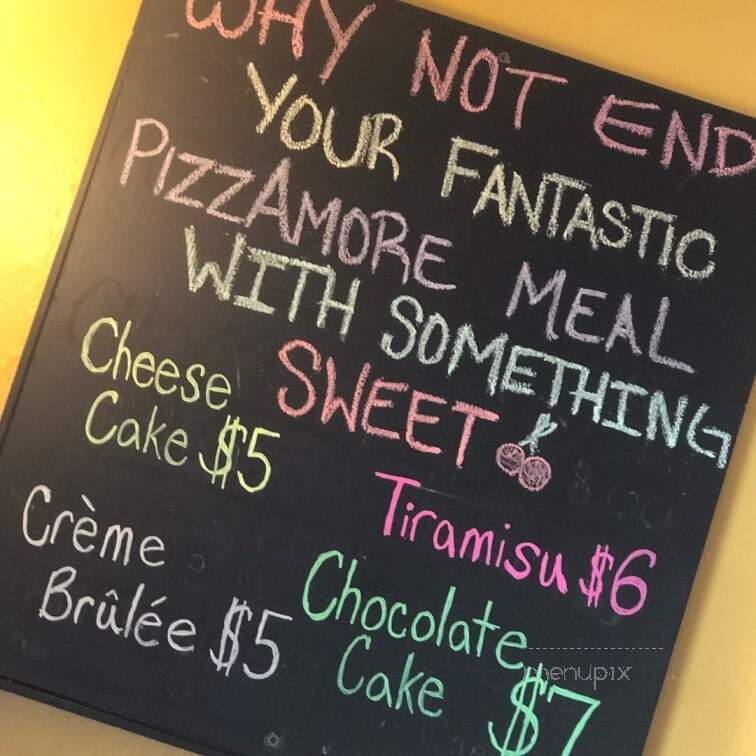 WHY NOT END
YOUR FANTASTIC
PIZZAMORE MEAL
WITH SOMETHING
SWEET
Cheese
Cake $5
Tiramisu $6
Crème
Brûlée $5
Chocolate
Cake $7
menupix